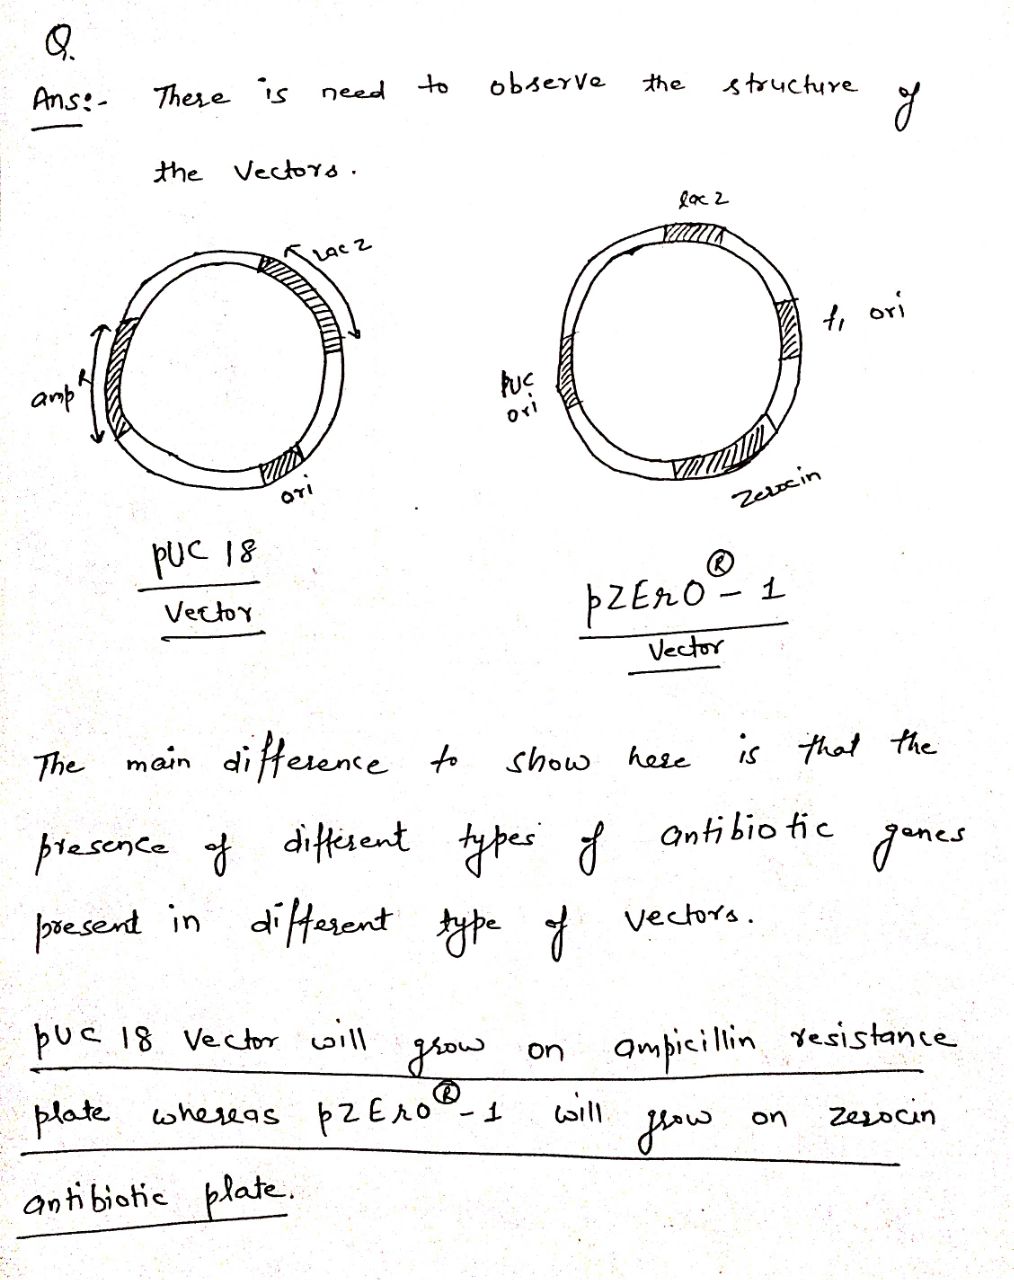 Q.
Ans:- There is need to observe the structure of
the Vectors.
Lac z
amp R
ori
pUC 18
Vector
lac z
f1 ori
pUC
ori
Zerocin
pZErO®-1
Vector
The main difference to show here is that the
presence of different types of antibiotic genes
present in different type of vectors.
pUC 18 Vector will grow on ampicillin resistance
plate whereas pZErO®-1 will grow on zerocin
antibiotic plate.